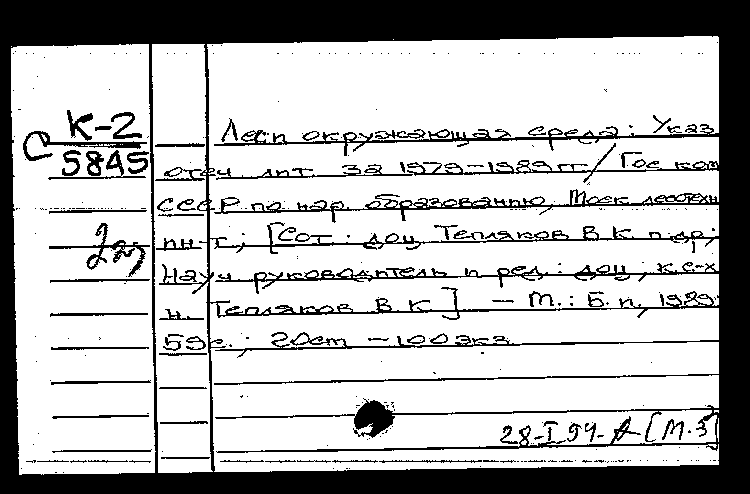 К-2
С 5845
Лес и окружающая среда: Указ.
отеч. лит. за 1979-1989 гг / Гос ком
СССР по нар. образованию, Моск лесотехн
ин-т; [Сост: доц Тепляков В К и др;
Науч руководитель и ред.: доц, к с-х
н. Тепляков В. К] - М.: Б. и, 1989.
59с.; 20см - 100экз
28-I 94- А [М.3]